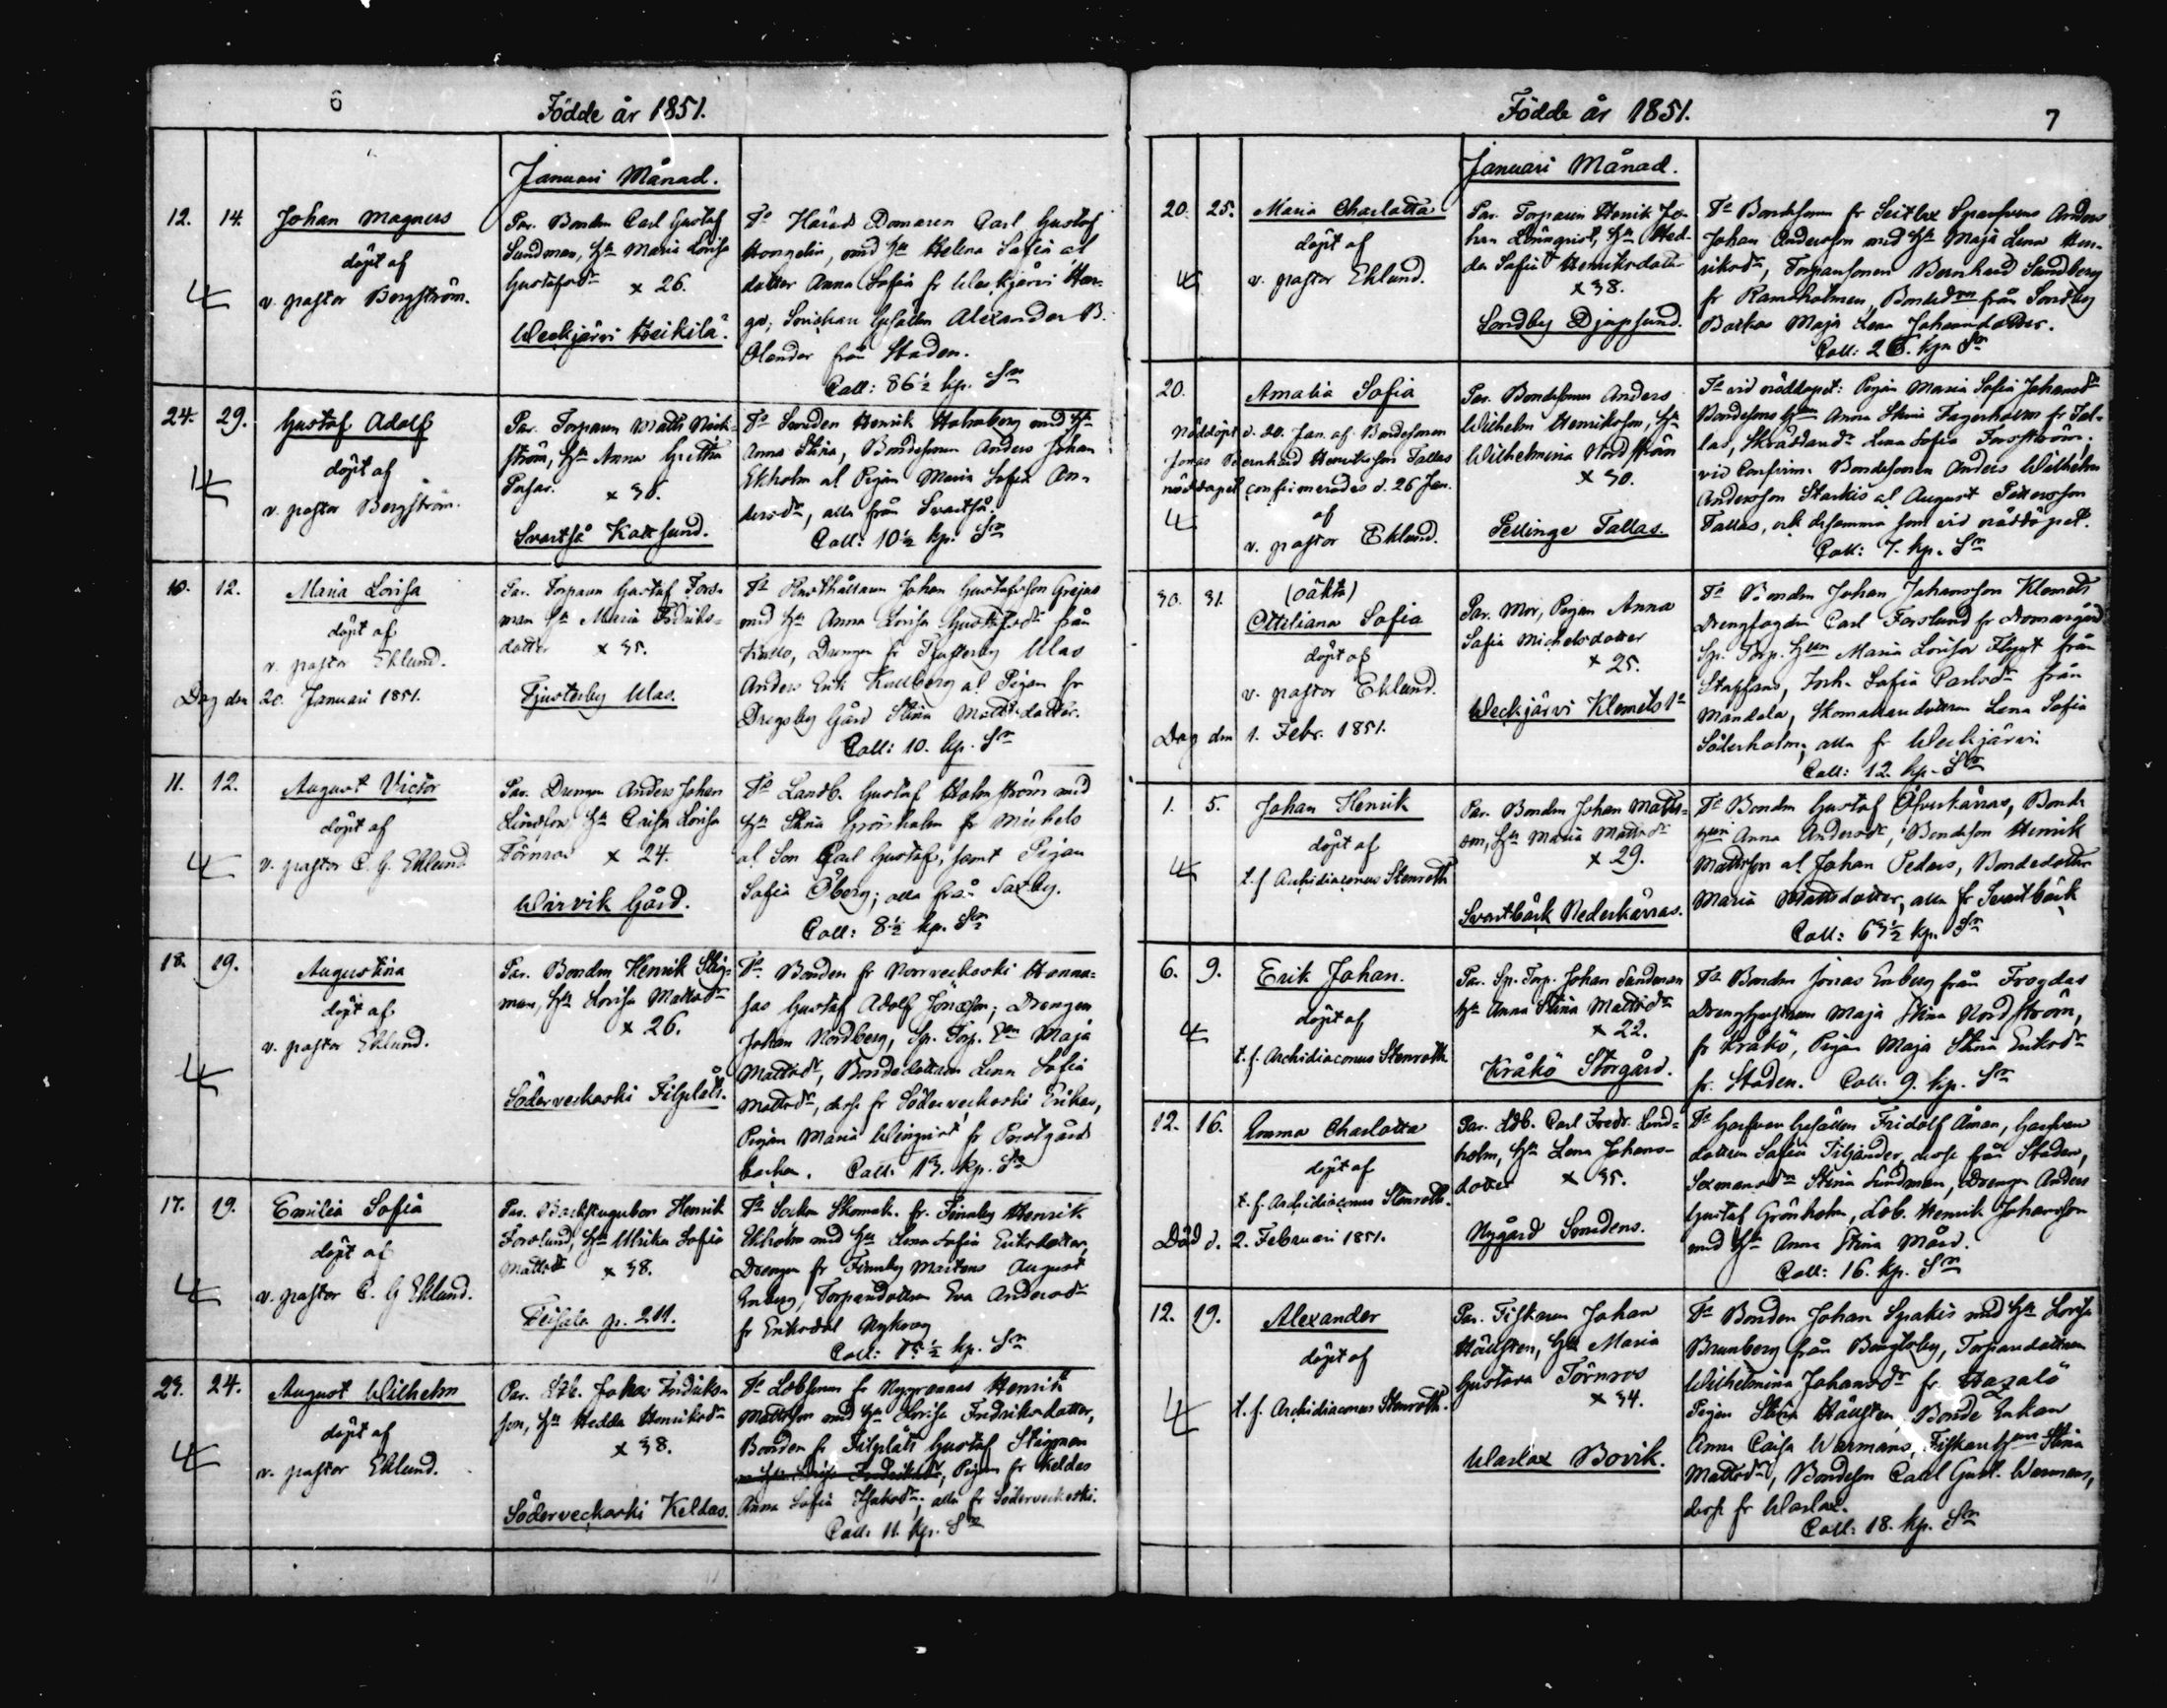 6
Födde år 1851.
Januari Månad.
12. 14. Johan Magnus
döpt af
v. pastor Bergström.
Par. Bonden Carl Gustaf
Sundman, Hu Maria Lovisa
Gustafsdr x 26.
Weckjärvi Heikilä.
Fr Härads Domaren Carl Gustaf
med Hu Helena Sofia al
dotter Anna Sofia fr Weckjärvi
Gesällen Alexander B.
Olander från Staden.
Coll: 86½ kp. Sr
24. 29. Gustaf Adolf
döpt af
v. pastor Bergström.
Par. Torparen Matts Nick-
ström, Hu Anna Gretha
x 36.
Svartså Kattsund.
Fr Henrik Holmberg med Hu
Anna Stina, Bondesonen Anders Johan
Ekholm al Pigan Maria Sofia An-
dersdr, alla från Svartså.
Coll: 10½ kp. Sr
10. 12. Maria Lovisa
döpt af
v. pastor Eklund.
Död den 20. Januari 1851.
Par. Torparen Gustaf Fors-
man Hu Maria Fredriks-
dotter x 35.
Tjusterby Ulas.
Fr Rusthållaren Johan Gustafsson Grejas
med Hu Anna Lovisa Gustafsdr från
Kullo, Drengen fr Tjusterby Ulas
Anders Erik Kullberg al Pigan fr
Drägsby Gård Stina Mattsdotter.
Coll: 10. kp. Sr
11. 12. August Victor
döpt af
v. pastor C. G. Eklund
Par. Drengen Anders Johan
Lindfors Hu Caisa Lovisa
Törnroos x 24.
Wirvik Gård.
Fr Landb. Gustaf Holmström med
Hu Stina Grönholm fr Michels
al Son Carl Gustaf, samt Pigan
Sofia Öberg; alla från Saxby.
Coll: 8½ kp. Sr
18. 19. Augustina
döpt af
v. pastor Eklund.
Par. Bonden Henrik Stig-
man, Hu Lovisa Mattsdr
x 26.
Söderveckoski Filpläts.
Fr Bonden fr Norrveckoski Hanna-
sas Gustaf Adolf Jönsson; Drengen
Johan Nordberg, Sp. Torp. Maja
Mattsdr, Bondedottren Lena Sofia
Mattsdr, desse fr Söderveckoski Erikas,
Pigan Maria Winqvist fr Prestgårds
backen. Coll: 13. kp. Sr
17. 19. Emilia Sofia
döpt af
v. pastor C. G Eklund.
Par. Backstugubon Henrik
Forslund, Hu Ulrika Sofia
Mattsdr x 38.
p. 211.
Fr Socken Skomak. fr. Finnby Henrik
Ekholm med Hu Lena Sofia Eriksdotter,
Drengen fr Finnby Martens August
Enberg, Torparedottren Eva Andersdr
fr Eriksdal Nykrog
Coll: 15½ kp. Sr
23. 24. August Wilhelm
döpt af
v. pastor Eklund.
Par. Ldb. Johan Fredriks-
son, Hu Hedda Henriksdr
x 38.
Söderveckoski Keldas.
Fr Ldbsonen fr Nygrannas Henrik
Mattsson med Hu Lovisa Fredriksdotter,
Bonden fr Filpläts Gustaf Stigman
Pigan fr Keldas
Anna Sofia Isaksdr; alla fr Söderveckoski.
Coll: 11. kp. Sr
Födde år 1851.
7
Januari Månad.
20. 25. Maria Charlotta
döpt af
v. pastor Eklund.
Par. Torparen Henrik Jo-
han Lönnqvist, Hu Hed-
da Sofia Henriksdotter
x 38.
Sondby Djupsund.
Fr Bondesonen fr Seitlax Sparfvens Anders
Johan Andersson med Hu Maja Lena Hen-
riksdr, Torparesonen Bernhard Sundberg
fr Ramsholmen, från Sondby
Backas Maja Lena Johansdotter.
Coll: 26. kpr Sr
20. Amalia Sofia
Nöddöpt d. 20. Jan. af Bondesonen
Jonas Bernhard Henriksson Tallas
nöddopet confirmerades d. 26 Jan.
af
v. pastor Eklund.
Par. Bondesonen Anders
Wilhelm Henriksson, Hu
Wilhelmina Nordström
x 30.
Pellinge Tallas.
Fr vid nöddopet: Pigan Maria Sofia Johansdr
Anna Stina Fagerholm fr Tal-
las, Skräddaredr Lena Sofia Forsström;
vid Confirm. Bondesonen Anders Wilhelm
Andersson Starkis al August Pettersson
Tallas, och desamma som vid nöddopet.
Coll: 7. kp. Sr
30. 31. (oäkta)
Ottiliana Sofia
döpt af
v. pastor Eklund.
Död den 1. Febr. 1851.
Par. Mor, Pigan Anna
Sofia Michelsdotter
x 25.
Weckjärvi Klemets
Fr Bonden Johan Johansson Klemets
Drengfogden Carl Forslund fr Domargård
Sp. Torp. Maria Lovisa Flygt från
Staffans, Inh. Sofia Carlsdr från
Mandala, Skomakaredottren Lena Sofia
Söderholm; alla fr Weckjärvi
Coll: 12. kp. Sr
1. 5. Johan Henrik
döpt af
t. f. Archidiaconus Stenroth
Par. Bonden Johan Matts-
son, Hu Maria Mattsdr
x 29.
Svartbäck Nederkärras.
Fr Bonden Gustaf Öfverkärras, Bonde
Anna Andersdr, Bondeson Henrik
Mattsson al Johan Peders, Bondedotter
Maria Mattsdotter, alla fr Svartbäck
Coll: 63½ kp. Sr
6. 9. Erik Johan.
döpt af
t. f. Archidiaconus Stenroth
Par. Sp. Torp. Johan Sandman
Hu Anna Stina Mattsdr
x 22.
Kråkö Storgård.
Fr Bonden Jonas Enberg från Frogdas
Drenghustrun Maja Stina Nordström,
fr Kråkö, Pigan Maja Stina Eriksdr
fr. Staden. Coll. 9. kp. Sr
12. 16. Emma Charlotta
döpt af
t. f. Archidiaconus Stenroth.
Död d. 2. Februari 1851.
Par. Ldb. Carl Fredr. Lind-
holm, Hu Lena Johans-
dotter x 35.
Nygård Smedens.
Fr Garfvare Gesällen Fridolf Åman, Garfvare
dottren Sofia Tiljander, desse från Staden,
Sexmansdr Stina Sundman, Drengen Anders
Gustaf Grönholm, Ldb. Henrik Johansson
med Hu Anna Stina Mård.
Coll: 16. kp. Sr
12. 19. Alexander
döpt af
t. f. Archidiaconus Stenroth.
Par. Fiskaren Johan
Hällsten, Hu Maria
Gustava Törnroos
x 34.
Warlax Bovik.
Fr Bonden Johan Spakis med Hu Lovisa
Brunberg från Bengtsby, Torparedottren
Wilhelmina Johansdr fr Hazalö
Pigan Stina Hällsten, Bonde Enkan
Anna Caisa Warmans, Stina
Mattsdr, Bondeson Carl Gust. Warmans,
desse fr Warlax.
Coll: 18. kp. Sr